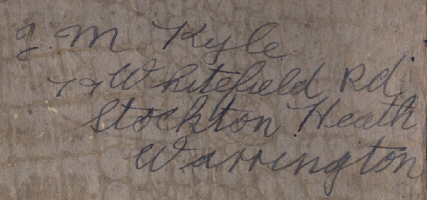 J. M Kyle
79 Whitefield Rd.
Stockton Heath
Warrington